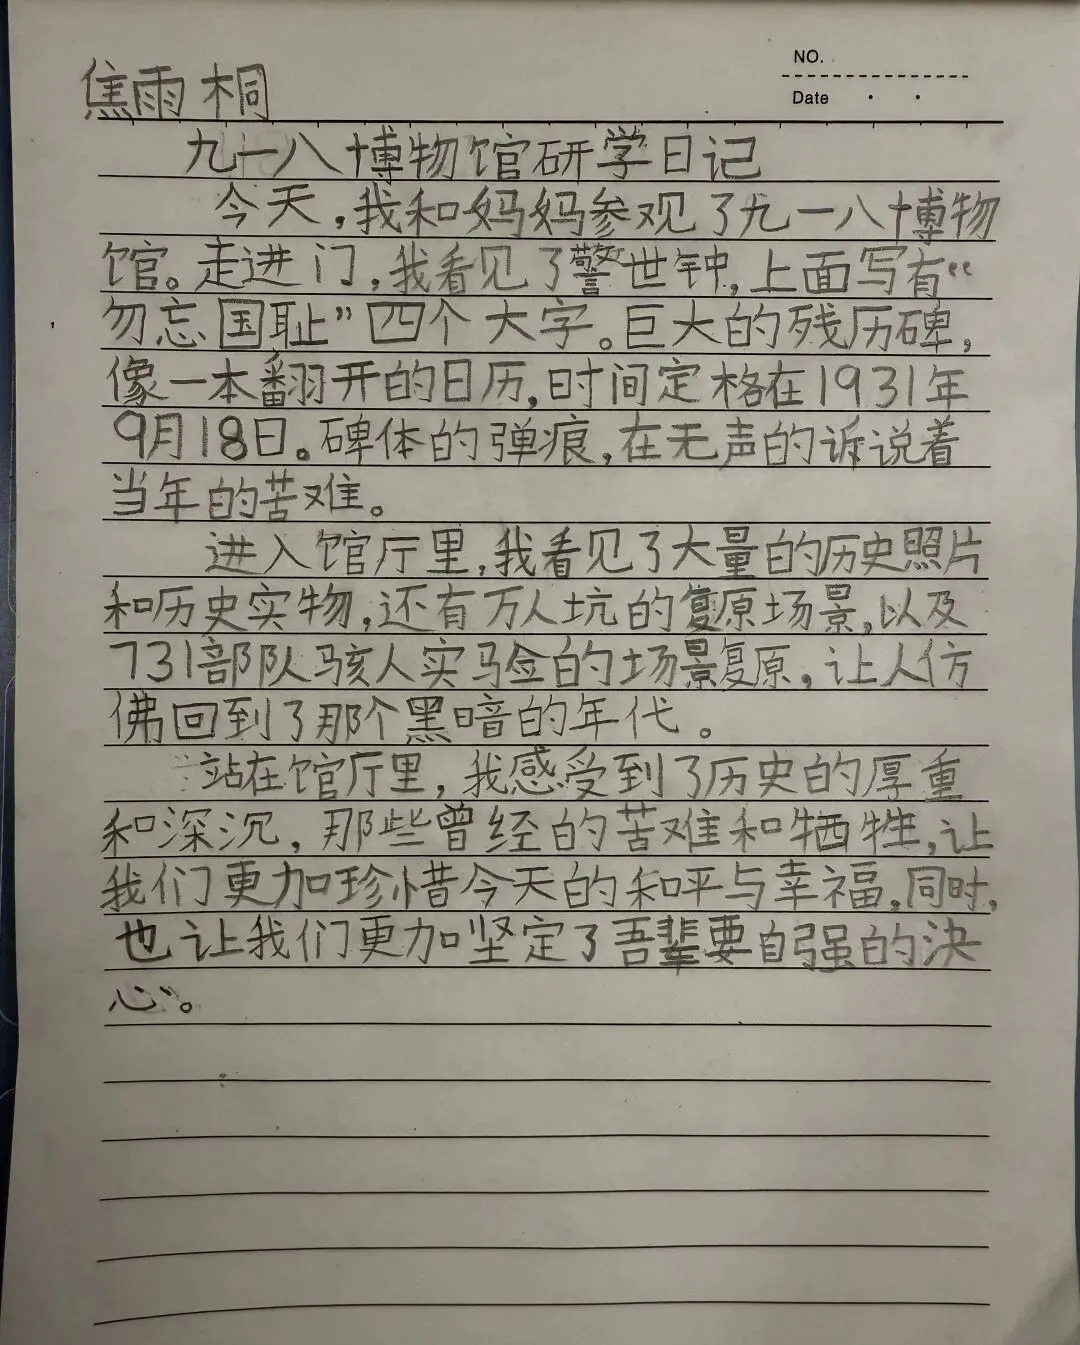 NO.
Date
焦雨桐
九一八博物馆研学日记
今天，我和妈妈参观了九一八博物
馆。走进门，我看见了警世钟，上面写有“
勿忘国耻”四个大字。巨大的残历碑，
像一本翻开的日历，时间定格在1931年
9月18日。碑体的弹痕，在无声的诉说着
当年的苦难。
进入馆厅里，我看见了大量的历史照片
和历史实物，还有万人坑的复原场景，以及
731部队骇人实验的场景复原，让人仿
佛回到了那个黑暗的年代。
站在馆厅里，我感受到了历史的厚重
和深沉，那些曾经的苦难和牺牲，让
我们更加珍惜今天的和平与幸福，同时，
也让我们更加坚定了吾辈要自强的决
心。